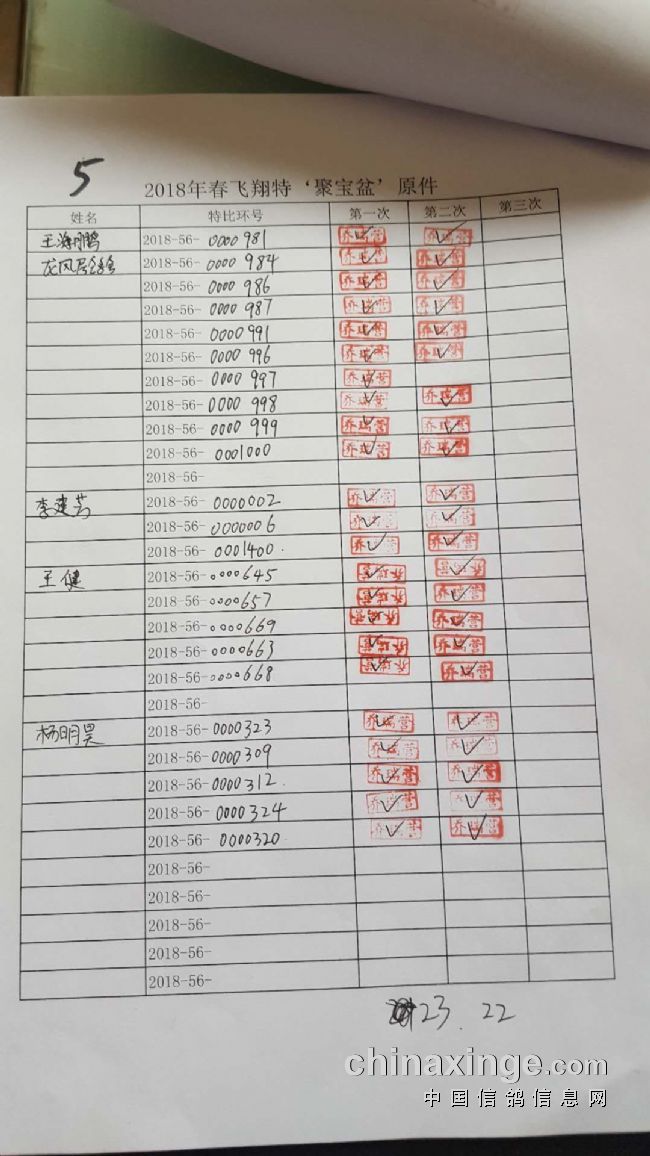 5
2018年春飞翔特‘聚宝盆’原件
姓名 特比环号 第一次 第二次 第三次
王海鹏 2018-56- 0000981 乔瑞营 乔瑞营
龙凤居鸽舍 2018-56- 0000984 乔瑞营 乔瑞营
2018-56- 0000986 乔瑞营 乔瑞营
2018-56- 0000987 乔瑞营 乔瑞营
2018-56- 0000991 乔瑞营 乔瑞营
2018-56- 0000996 乔瑞营 乔瑞营
2018-56- 0000997 乔瑞营
2018-56- 0000998 乔瑞营 乔瑞营
2018-56- 0000999 乔瑞营 乔瑞营
2018-56- 0001000 乔瑞营 乔瑞营
2018-56-
李建芳 2018-56- 0000002 乔瑞营 乔瑞营
2018-56- 0000006 乔瑞营 乔瑞营
2018-56- 0001400. 乔瑞营 乔瑞营
王健 2018-56- 0000645 乔瑞营 乔瑞营
2018-56- 0000657 乔瑞营 乔瑞营
2018-56- 0000669 乔瑞营 乔瑞营
2018-56- 0000663 乔瑞营 乔瑞营
2018-56- 0000668 乔瑞营 乔瑞营
2018-56-
杨明昊 2018-56- 0000323 乔瑞营 乔瑞营
2018-56- 0000309 乔瑞营 乔瑞营
2018-56- 0000312. 乔瑞营 乔瑞营
2018-56- 0000324 乔瑞营 乔瑞营
2018-56- 0000320 乔瑞营 乔瑞营
2018-56-
2018-56-
2018-56-
2018-56-
2018-56-
23. 22
chinaxinge.com
中国信鸽信息网